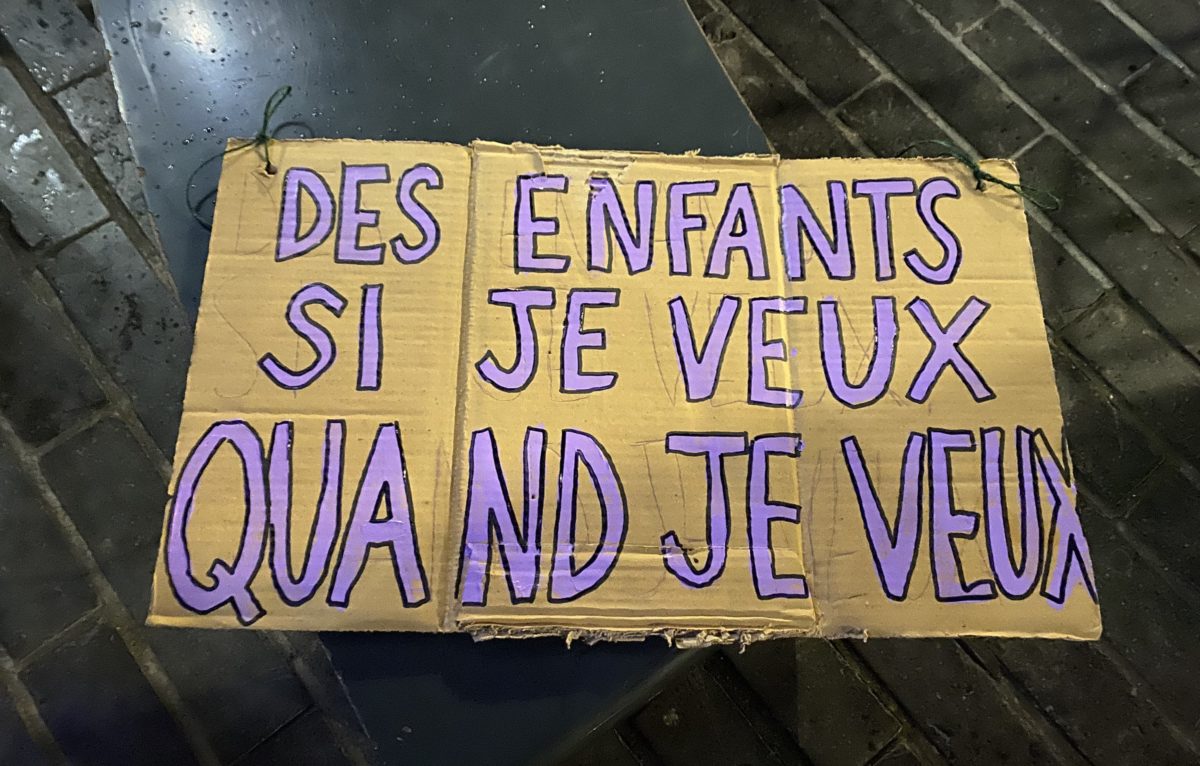 DES ENFANTS
SI JE VEUX
QUAND JE VEUX